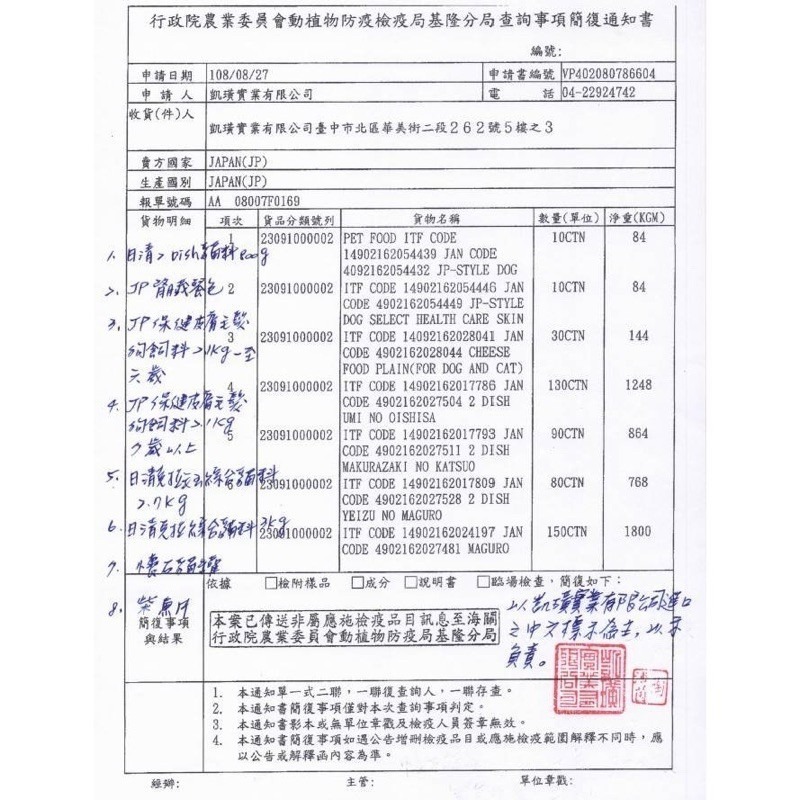 行政院農業委員會動植物防疫檢疫局基隆分局查詢事項簡復通知書
編號:
申請日期 108/08/27 申請書編號 VP402080786604
申請人 凱璜實業有限公司 電話 04-22924742
收貨(件)人
凱璜實業有限公司臺中市北區華美街二段262號5樓之3
賣方國家 JAPAN(JP)
生產國別 JAPAN(JP)
報單號碼 AA 08007F0169
貨物明細 項次 貨品分類號列 貨物名稱 數量(單位) 淨重(KGM)
1 23091000002 PET FOOD ITF CODE 10CTN 84
14902162054439 JAN CODE
4092162054432 JP-STYLE DOG
2 23091000002 ITF CODE 14902162054446 JAN 10CTN 84
CODE 4902162054449 JP-STYLE
DOG SELECT HEALTH CARE SKIN
3 23091000002 ITF CODE 14092162028041 JAN 30CTN 144
CODE 4902162028044 CHEESE
FOOD PLAIN(FOR DOG AND CAT)
4 23091000002 ITF CODE 14902162017786 JAN 130CTN 1248
CODE 4902162027504 2 DISH
UMI NO OISHISA
5 23091000002 ITF CODE 14902162017793 JAN 90CTN 864
CODE 4902162027511 2 DISH
MAKURAZAKI NO KATSUO
23091000002 ITF CODE 14902162017809 JAN 80CTN 768
CODE 4902162027528 2 DISH
YEIZU NO MAGURO
23091000002 ITF CODE 14902162024197 JAN 150CTN 1800
CODE 4902162027481 MAGURO
1. 日清2 Dish貓料800g
2. JP 腎臟
3. JP保健皮膚毛髮
狗飼料2.1kg一至
六歲
4. JP保健皮膚毛髮
狗飼料2.1kg
7歲以上
5. 日清 綜合貓料
2.7kg
6. 日清 綜合貓料 3kg
7. 懷石貓罐
8. 柴魚片
依據 □檢附樣品 □成分 □說明書 □臨場檢查,簡復如下:
簡復事項
與結果
本案已傳送非屬應施檢疫品目訊息至海關
行政院農業委員會動植物防疫局基隆分局
以凱璜實業有限公司進口
之中文標示為主,以示
負責。
1. 本通知單一式二聯,一聯復查詢人,一聯存查。
2. 本通知書簡復事項僅對本次查詢事項判定。
3. 本通知書影本或無單位章戳及檢疫人員簽章無效。
4. 本通知書簡復事項如遇公告增刪檢疫品目或應施檢疫範圍解釋不同時,應
以公告或解釋函內容為準。
經辦: 主管: 單位章戳: